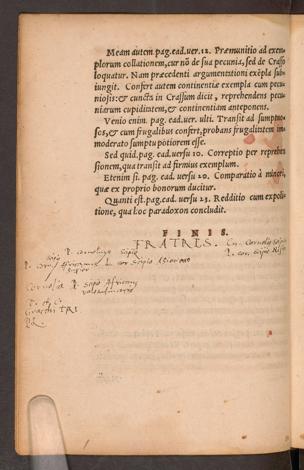 Meam autem pag.ead.uer.12. Præmunitio ad exem-
plorum collationem, cur nõ de sua pecunia, sed de Crasso
loquatur. Nam præcedenti argumentationi exẽpla sub-
iungit. Confert autem continentiæ exempla cum pecu-
niosis: & cuncta in Crassum dicit, reprehendens pecu-
niarum cupiditatem, & continentiam anteponens.
Venio enim. pag. ead. uer. ulti. Transit ad sumptuo-
ses, & cum frugalibus confert, probans frugalitatem im
moderato sumptu potiorem esse.
Sed quid. pag. ead. uersu 10. Correptio per reprehen
sionem, qua transit ad firmius exemplum.
Etenim si. pag. ead. uersu 20. Comparatio à minori,
quæ ex proprio bonorum ducitur.
Quanti est. pag. ead. uersu 23. Redditio cum expoli-
tione, qua hoc paradoxon concludit.
FINIS.
FRATRES.
P. Cornelius Scipio
Cornelia P. Scipio Africanus
Gracchi TRI